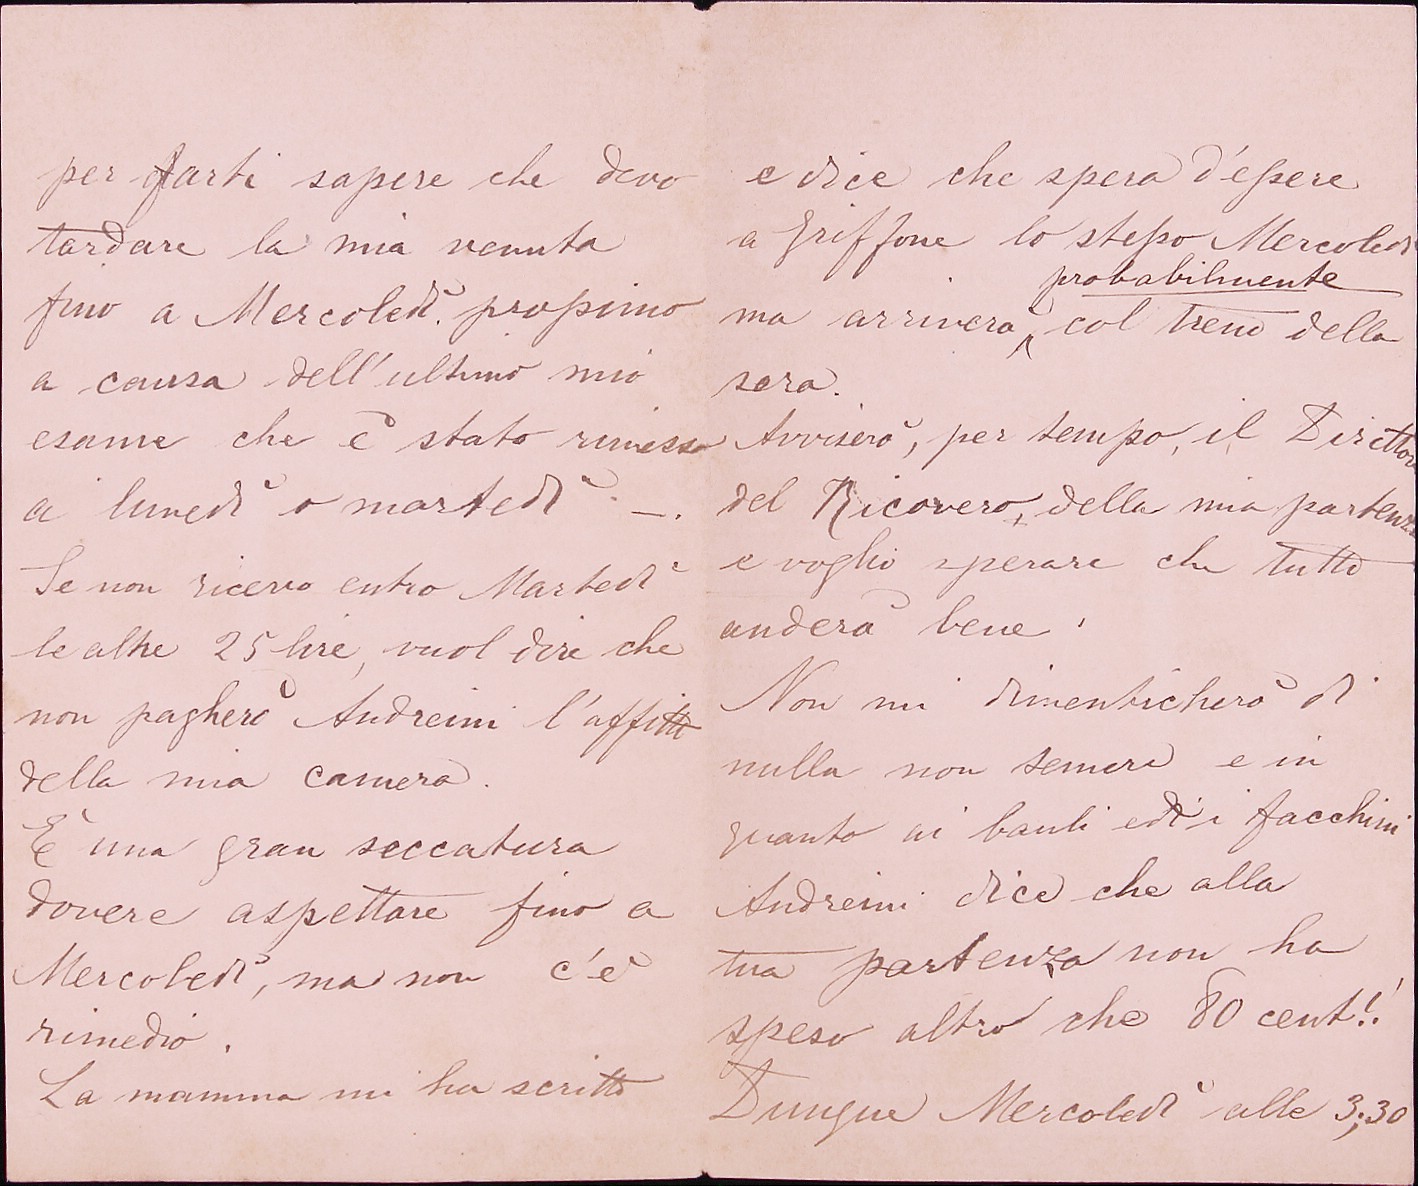 per farti sapere che devo
tardare la mia venuta
fino a Mercoledì prossimo
a causa dell'ultimo mio
esame che è stato rimesso
a lunedì o martedì —.
Se non ricevo entro Martedì
le altre 25 lire, vuol dire che
non pagherò Andreini l'affitto
della mia camera.
È una gran seccatura
dovere aspettare fino a
Mercoledì, ma non c'è
rimedio.
La mamma mi ha scritto
e dice che spera d'essere
a Griffone lo stesso Mercoledì
probabilmente
ma arriverà col treno della
sera.
Avviserò, per tempo, il Direttore
del Ricovero, della mia partenza
e voglio sperare che tutto
anderà bene.
Non mi dimenticherò di
nulla non temere e in
quanto ai bauli ed i facchini
Andreini dice che alla
tua partenza non ha
speso altro che 80 cent!!
Dunque Mercoledì alle 3;30